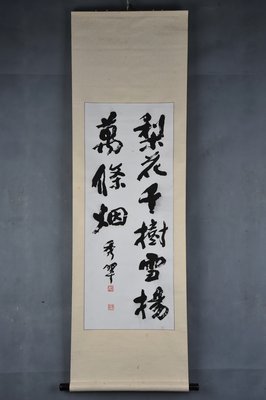 梨花千樹雪楊
萬條烟
秀翠